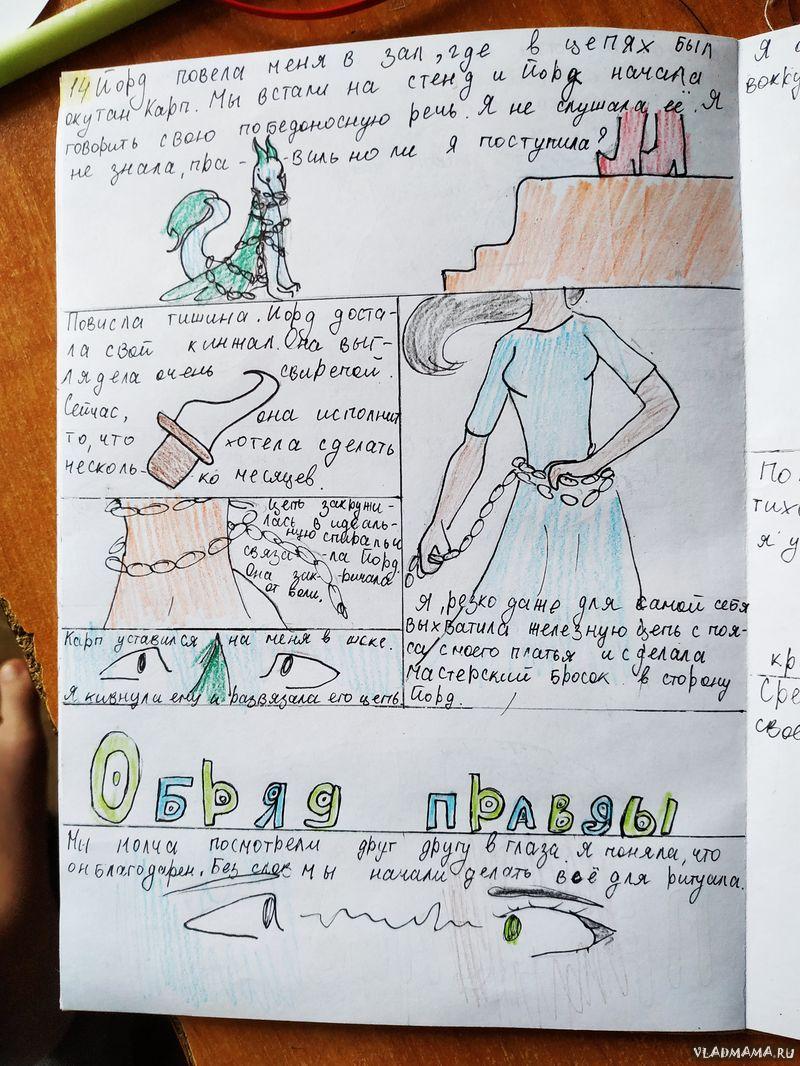 14 Йорд повела меня в зал, где в цепях был
окутан Карп. Мы встали на стенд и Йорд начала
говорить свою победоносную речь. Я не слушала её. Я
не знала, пра- -вильно ли я поступила?
Повисла тишина. Йорд доста-
ла свой кинжал. Она выг-
лядела очень свиречой.
Сейчас, она исполнит
то, что хотела сделать
несколь- ко месяцев.
Цепь закружи-
лась в идеаль-
ную спираль и
связа- ла Йорд.
Она зак- ричала
от боли.
Карп уставился на меня в шоке.
Я кивнула ему и развязала его цепь
Я, резко даже для самой себя
выхватила железную цепь с поя-
са с моего платья и сделала
мастерский бросок в сторону
Йорд.
Обряд правды
Мы молча посмотрели друг другу в глаза. Я поняла, что
он благодарен. Без слов мы начали делать всё для ритуала.
Я
вокру
По
тихо
я у
кр
Сре
свое
VLADMAMA.RU